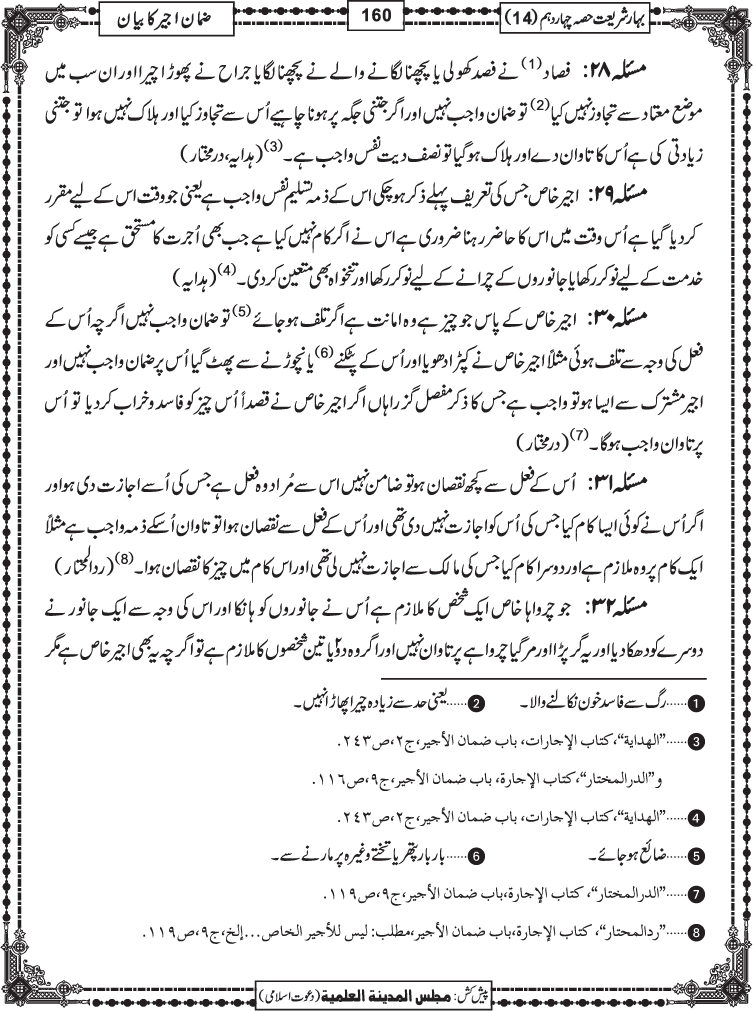 بہار شریعت حصہ چہاردہم (14)
160
ضمان اجیر کا بیان
مسئلہ ۲۸: فصاد(1) نے فصد کھولی یا پچھنا لگانے والے نے پچھنا لگایا یا جراح نے پھوڑا چیرا اور ان سب میں
موضع معتاد سے تجاوز نہیں کیا(2) تو ضمان واجب نہیں اور اگر جتنی جگہ پر ہونا چاہیے اُس سے تجاوز کیا اور ہلاک نہیں ہوا تو جتنی
زیادتی کی ہے اُس کا تاوان دے اور ہلاک ہوگیا تو نصف دیت نفس واجب ہے۔(3) (ہدایہ، درمختار)
مسئلہ ۲۹: اجیر خاص جس کی تعریف پہلے ذکر ہوچکی اس کے ذمہ تسلیم نفس واجب ہے یعنی جو وقت اس کے لیے مقرر
کردیا گیا ہے اُس وقت میں اس کا حاضر رہنا ضروری ہے اس نے اگر کام نہیں کیا ہے جب بھی اُجرت کا مستحق ہے جیسے کسی کو
خدمت کے لیے نوکر رکھا یا جانوروں کے چرانے کے لیے نوکر رکھا اور تنخواہ بھی متعین کردی۔(4) (ہدایہ)
مسئلہ ۳۰: اجیر خاص کے پاس جو چیز ہے وہ امانت ہے اگر تلف ہوجائے(5) تو ضمان واجب نہیں اگرچہ اُس کے
فعل کی وجہ سے تلف ہوئی مثلاً اجیر خاص نے کپڑا دھویا اور اُس کے پٹکنے(6) یا نچوڑنے سے پھٹ گیا اُس پر ضمان واجب نہیں اور
اجیر مشترک سے ایسا ہو تو واجب ہے جس کا ذکر مفصل گزرا ہاں اگر اجیر خاص نے قصداً اُس چیز کو فاسد و خراب کردیا تو اُس
پر تاوان واجب ہوگا۔(7) (درمختار)
مسئلہ ۳۱: اُس کے فعل سے کچھ نقصان ہو تو ضامن نہیں اس سے مُراد وہ فعل ہے جس کی اُسے اجازت دی ہو اور
اگر اُس نے کوئی ایسا کام کیا جس کی اُس کو اجازت نہیں دی تھی اور اُس کے فعل سے نقصان ہوا تو تاوان اُسکے ذمہ واجب ہے مثلاً
ایک کام پر وہ ملازم ہے اور دوسرا کام کیا جس کی مالک سے اجازت نہیں لی تھی اور اس کام میں چیز کا نقصان ہوا۔(8) (ردالمحتار)
مسئلہ ۳۲: جو چرواہا خاص ایک شخص کا ملازم ہے اُس نے جانوروں کو ہانکا اور اس کی وجہ سے ایک جانور نے
دوسرے کو دھکا دیا اور یہ گر پڑا اور مر گیا چرواہے پر تاوان نہیں اور اگر وہ دو۲ یا تین شخصوں کا ملازم ہے تو اگرچہ یہ بھی اجیر خاص ہے مگر
1......رگ سے فاسد خون نکالنے والا۔ 2......یعنی حد سے زیادہ چیرا پھاڑا نہیں۔
3......”الهداية“، كتاب الإجارات، باب ضمان الأجير، ج۲، ص۲٤۳.
و”الدرالمختار“، كتاب الإجارة، باب ضمان الأجير، ج۹، ص۱۱٦.
4......”الهداية“، كتاب الإجارات، باب ضمان الأجير، ج۲، ص۲٤۳.
5......ضائع ہوجائے۔ 6......بار بار پتھر یا تختے وغیرہ پر مارنے سے۔
7......”الدرالمختار“، كتاب الإجارة، باب ضمان الأجير، ج۹، ص۱۱۹.
8......”ردالمحتار“، كتاب الإجارة، باب ضمان الأجير، مطلب: ليس للأجير الخاص...إلخ، ج۹، ص۱۱۹.
پیش کش: مجلس المدینة العلمیة (دعوت اسلامی)